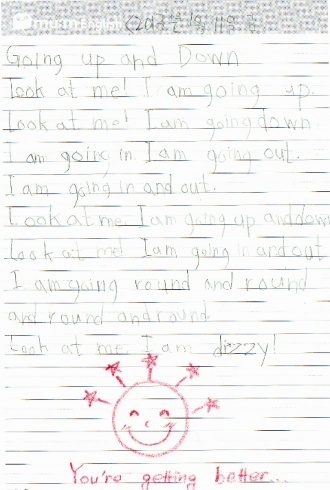 Going up and Down
Look at me! I am going up.
Look at me! I am going down
I am going in. I am going out.
I am going in and out.
Look at me. I am going up and down
Look at me! I am going in and out
I am going round and round
and round and round
Look at me. I am dizzy!
You're getting better...